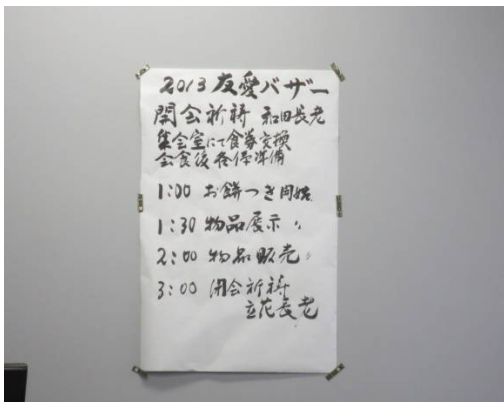 2013 友愛バザー
開会祈祷 和田長老
集会室にて食券交換
会食後各係準備
1:00 お餅つき開始
1:30 物品展示 〃
2:00 物品販売 〃
3:00 閉会祈祷
立花長老